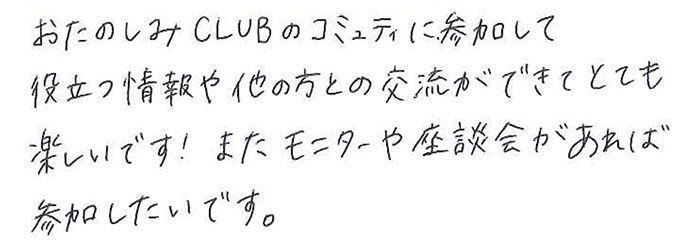 おたのしみCLUBのコミュティに参加して
役立つ情報や他の方との交流ができてとても
楽しいです！またモニターや座談会があれば
参加したいです。